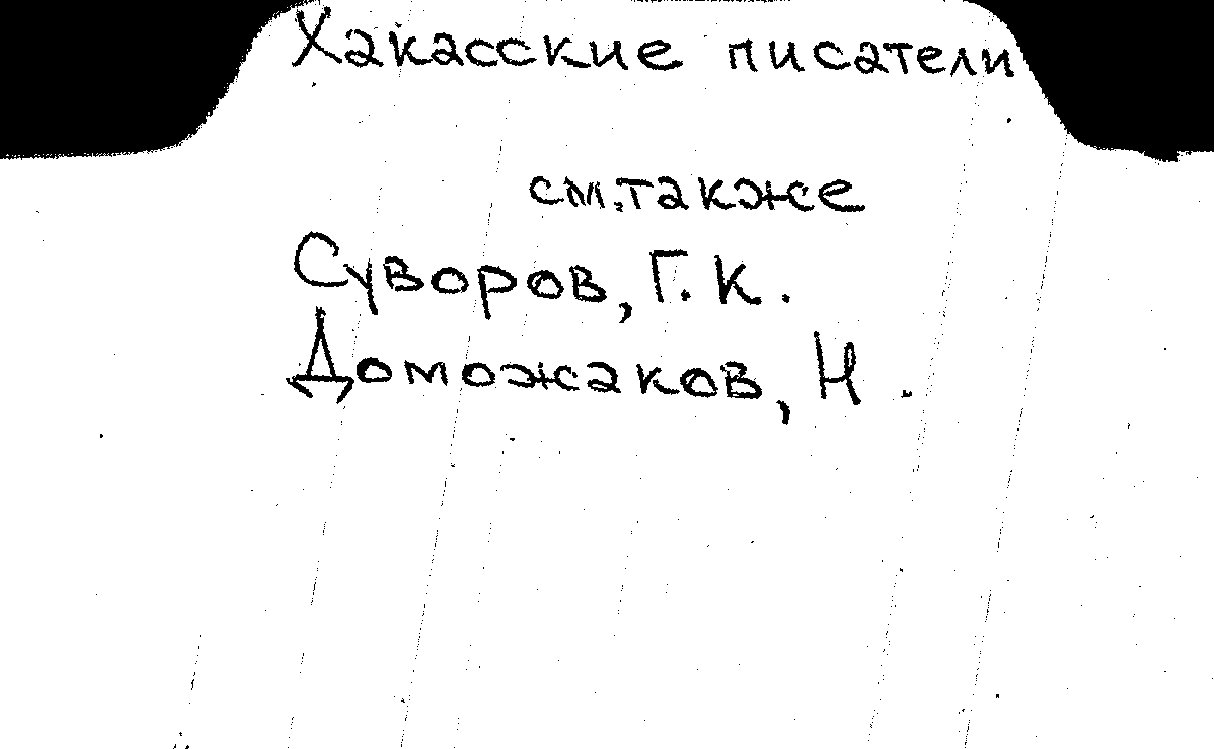 Хакасские писатели
см. также
Суворов, Г. К.
Доможаков, Н.